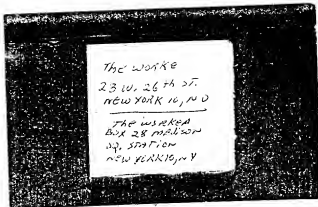 The WORKE
23 W. 26 th ST.
NEW YORK 10, N D
The WORKER
BOX 28 MADISON
SQ. STATION
NEW YORK 10, N Y